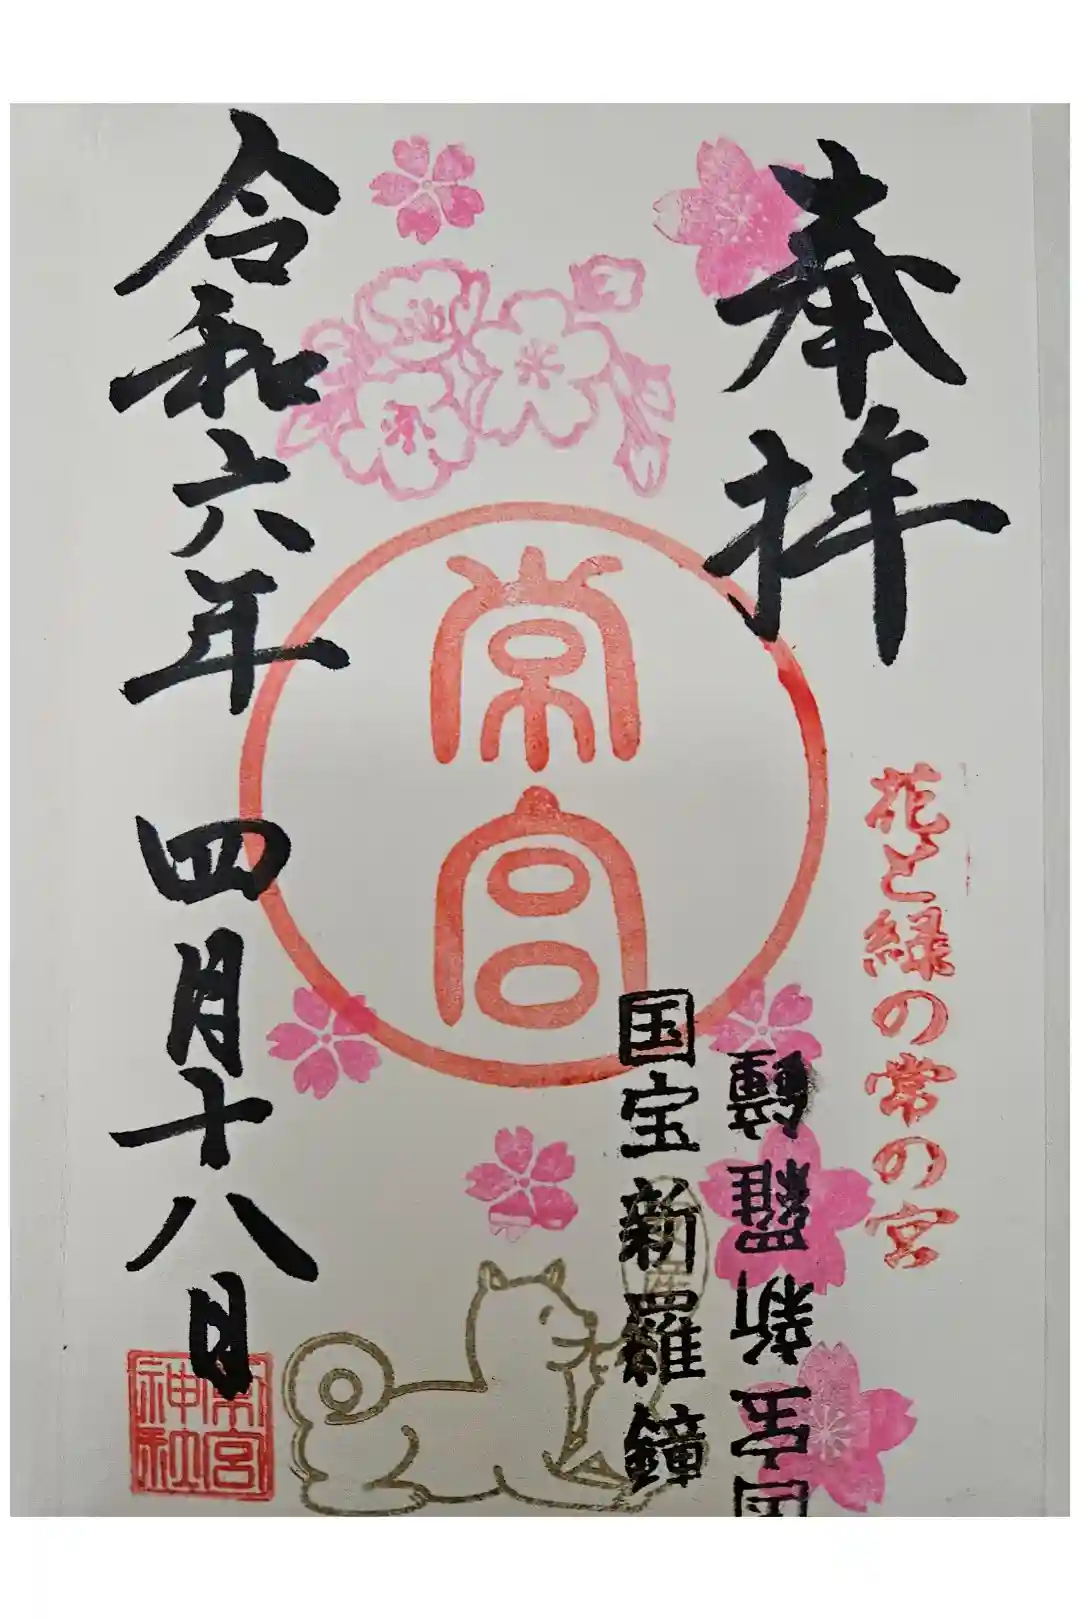 奉拝
花と緑の常の宮
国宝新羅鐘
国宝新羅鐘
常宮
令和六年 四月十八日
常宮
神社